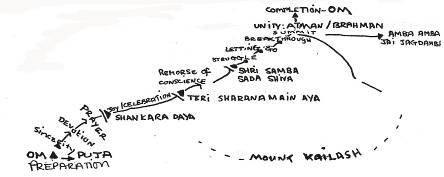 COMPLETION-OM
UNITY: ATMAN/BRAHMAN
SUMMIT
BREAKTHROUGH
AMBA AMBA
JAI JAGDAMBA
LETTING GO
STRUGGLE
SHRI SAMBA
SADA SHIVA
REMORSE OF
CONSCIENCE
JOY/CELEBRATION
TERI SHARANAMAIN AYA
PRAYER
SHANKARA DAYA
DEVOTION
SINCERITY
OM PUJA
PREPARATION
MOUNT KAILASH